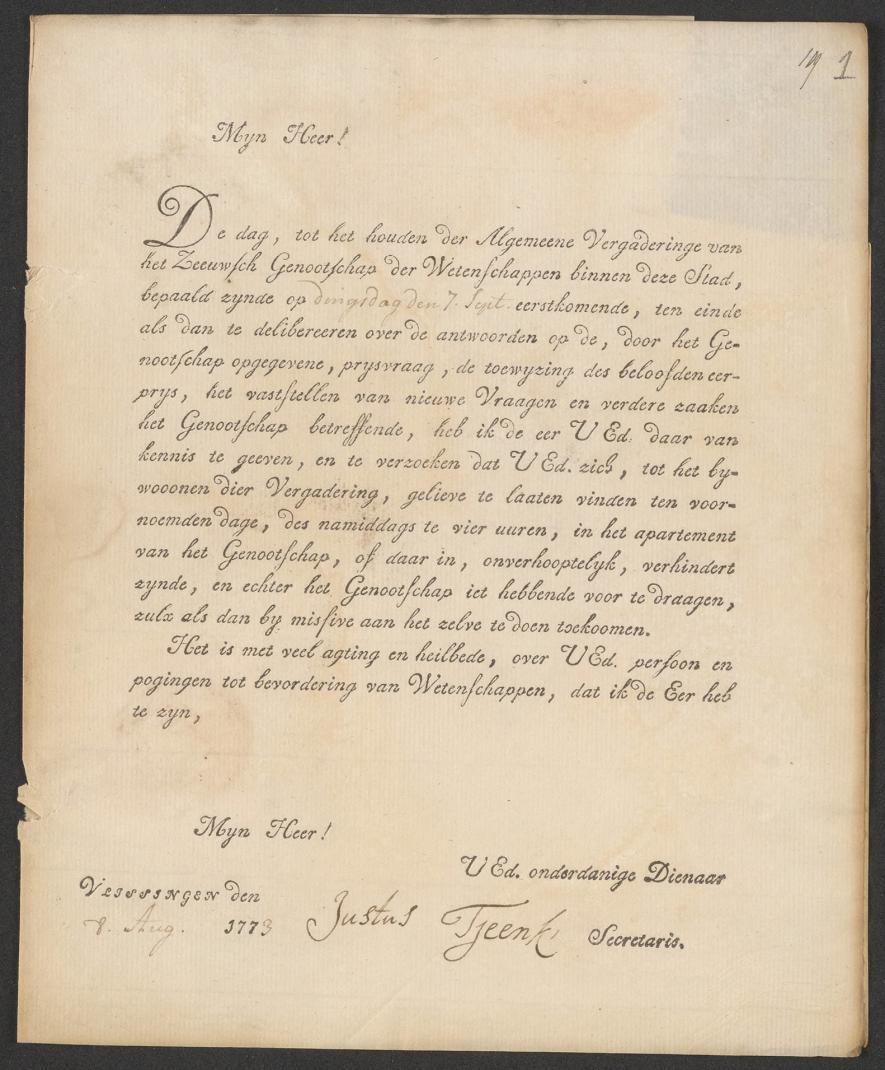 19 1
Myn Heer!
De dag, tot het houden der Algemeene Vergaderinge van
het Zeeuwsch Genootschap der Wetenschappen binnen deze Stad,
bepaald zynde op dingsdag den 7. Sept. eerstkomende, ten einde
als dan te delibereeren over de antwoorden op de, door het Ge-
nootschap opgegevene, prysvraag, de toewyzing des beloofden eer-
prys, het vaststellen van nieuwe Vraagen en verdere zaaken
het Genootschap betreffende, heb ik de eer U Ed. daar van
kennis te geeven, en te verzoeken dat U Ed. zich, tot het by-
wooonen dier Vergadering, gelieve te laaten vinden ten voor-
noemden dage, des namiddags te vier uuren, in het apartement
van het Genootschap, of daar in, onverhooptelyk, verhindert
zynde, en echter het Genootschap iet hebbende voor te draagen,
zulx als dan by missive aan het zelve te doen toekoomen.
Het is met veel agting en heilbede, over U Ed. persoon en
pogingen tot bevordering van Wetenschappen, dat ik de Eer heb
te zyn,
Myn Heer!
U Ed. onderdanige Dienaar
VLISSINGEN den
8. Aug. 1773 Justus Tjeenk Secretaris.